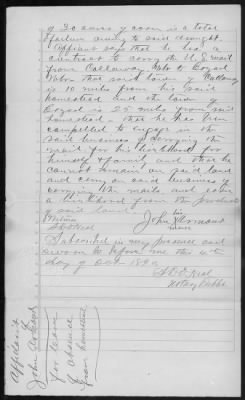 of 30 acres of corn is a total
failure owing to said drought.
Affiant says that he has a
contract to carry the U.S. mail
from Callaway Neb to Cozad
Nebr that said town of Callaway
is 10 miles from his said
homestead and the town of
Cozad is 25 miles from said
homestead - that he has been
compelled to engage in the
said business of carrying the
mail for his livelihood for
himself & family and that he
cannot remain on said land
and carry on said business of
carrying the mails and earn
a livelihood from the products
of said land.
Witness John his
mark
Subscribed in my presence and
sworn to before me this 4th
day of Oct 1890
Notary Public
Affidavit
John
for leave
of absence
from homestead